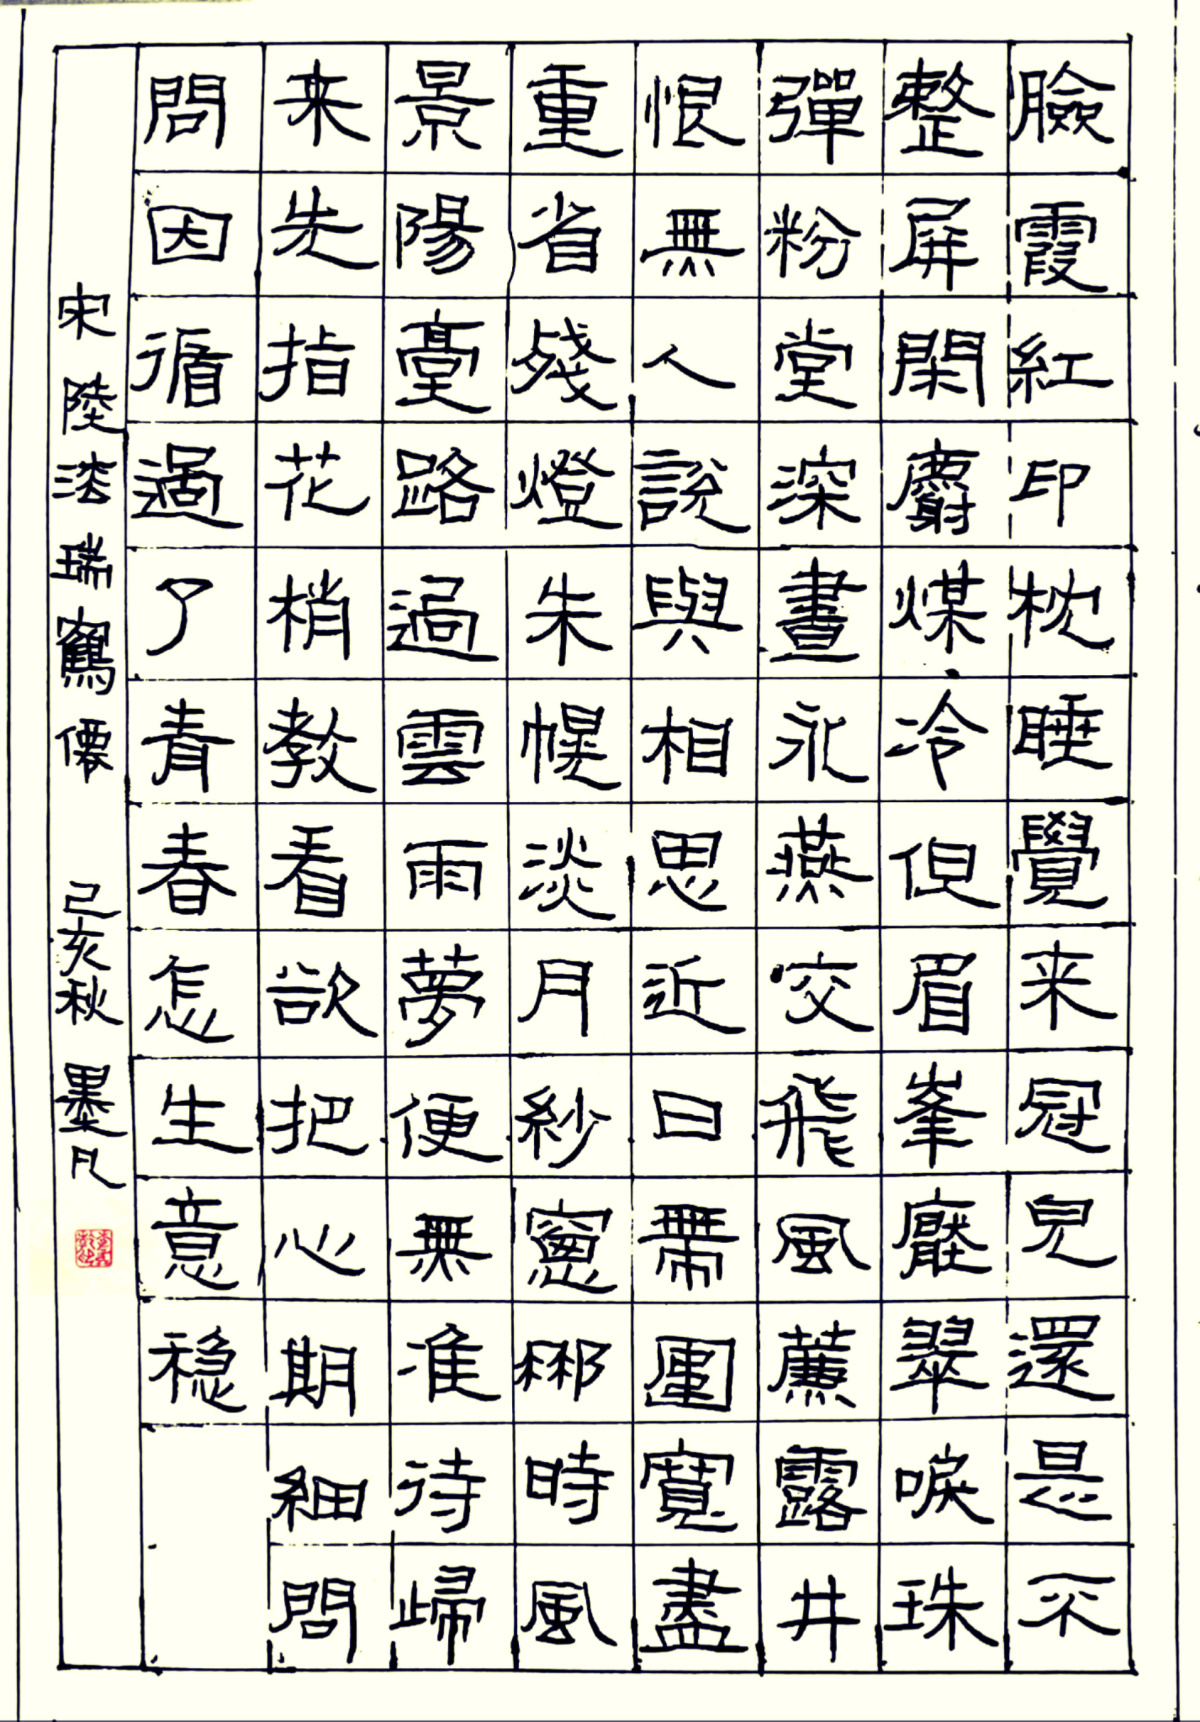 臉霞紅印枕睡覺来冠皃還是不
整屏閑麝煤冷但眉峯壓翠唳珠
彈粉堂深晝永燕交飛風薦露井
恨無人説與相思近日帶圍寬盡
重省殘燈朱幌淡月紗窻那時風
景陽臺路過雲雨夢便無准待歸
来先指花梢教看欲把心期細問
問因循過了青春怎生意稳
宋陸淞瑞鶴僊 己亥秋墨凡